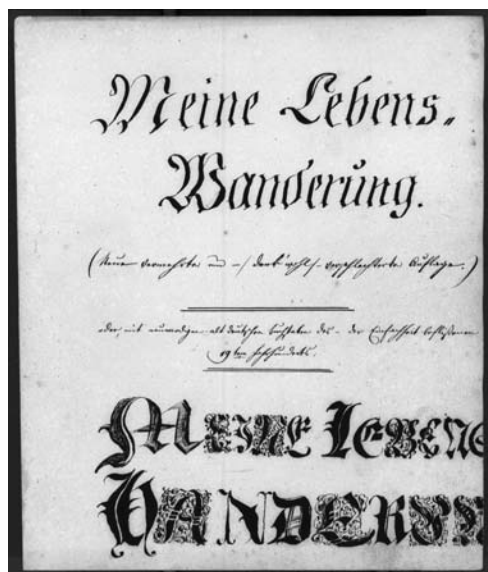 Meine Lebens-
Wanderung.
(Neue vermehrte und -/ denk' wohl /- verschlechterte Auflage.)
oder, mit altdeutschen Buchstaben des - der Einfachheit beflissenen
19ten Jahrhunderts.
MEINE LEBENS
WANDERUN